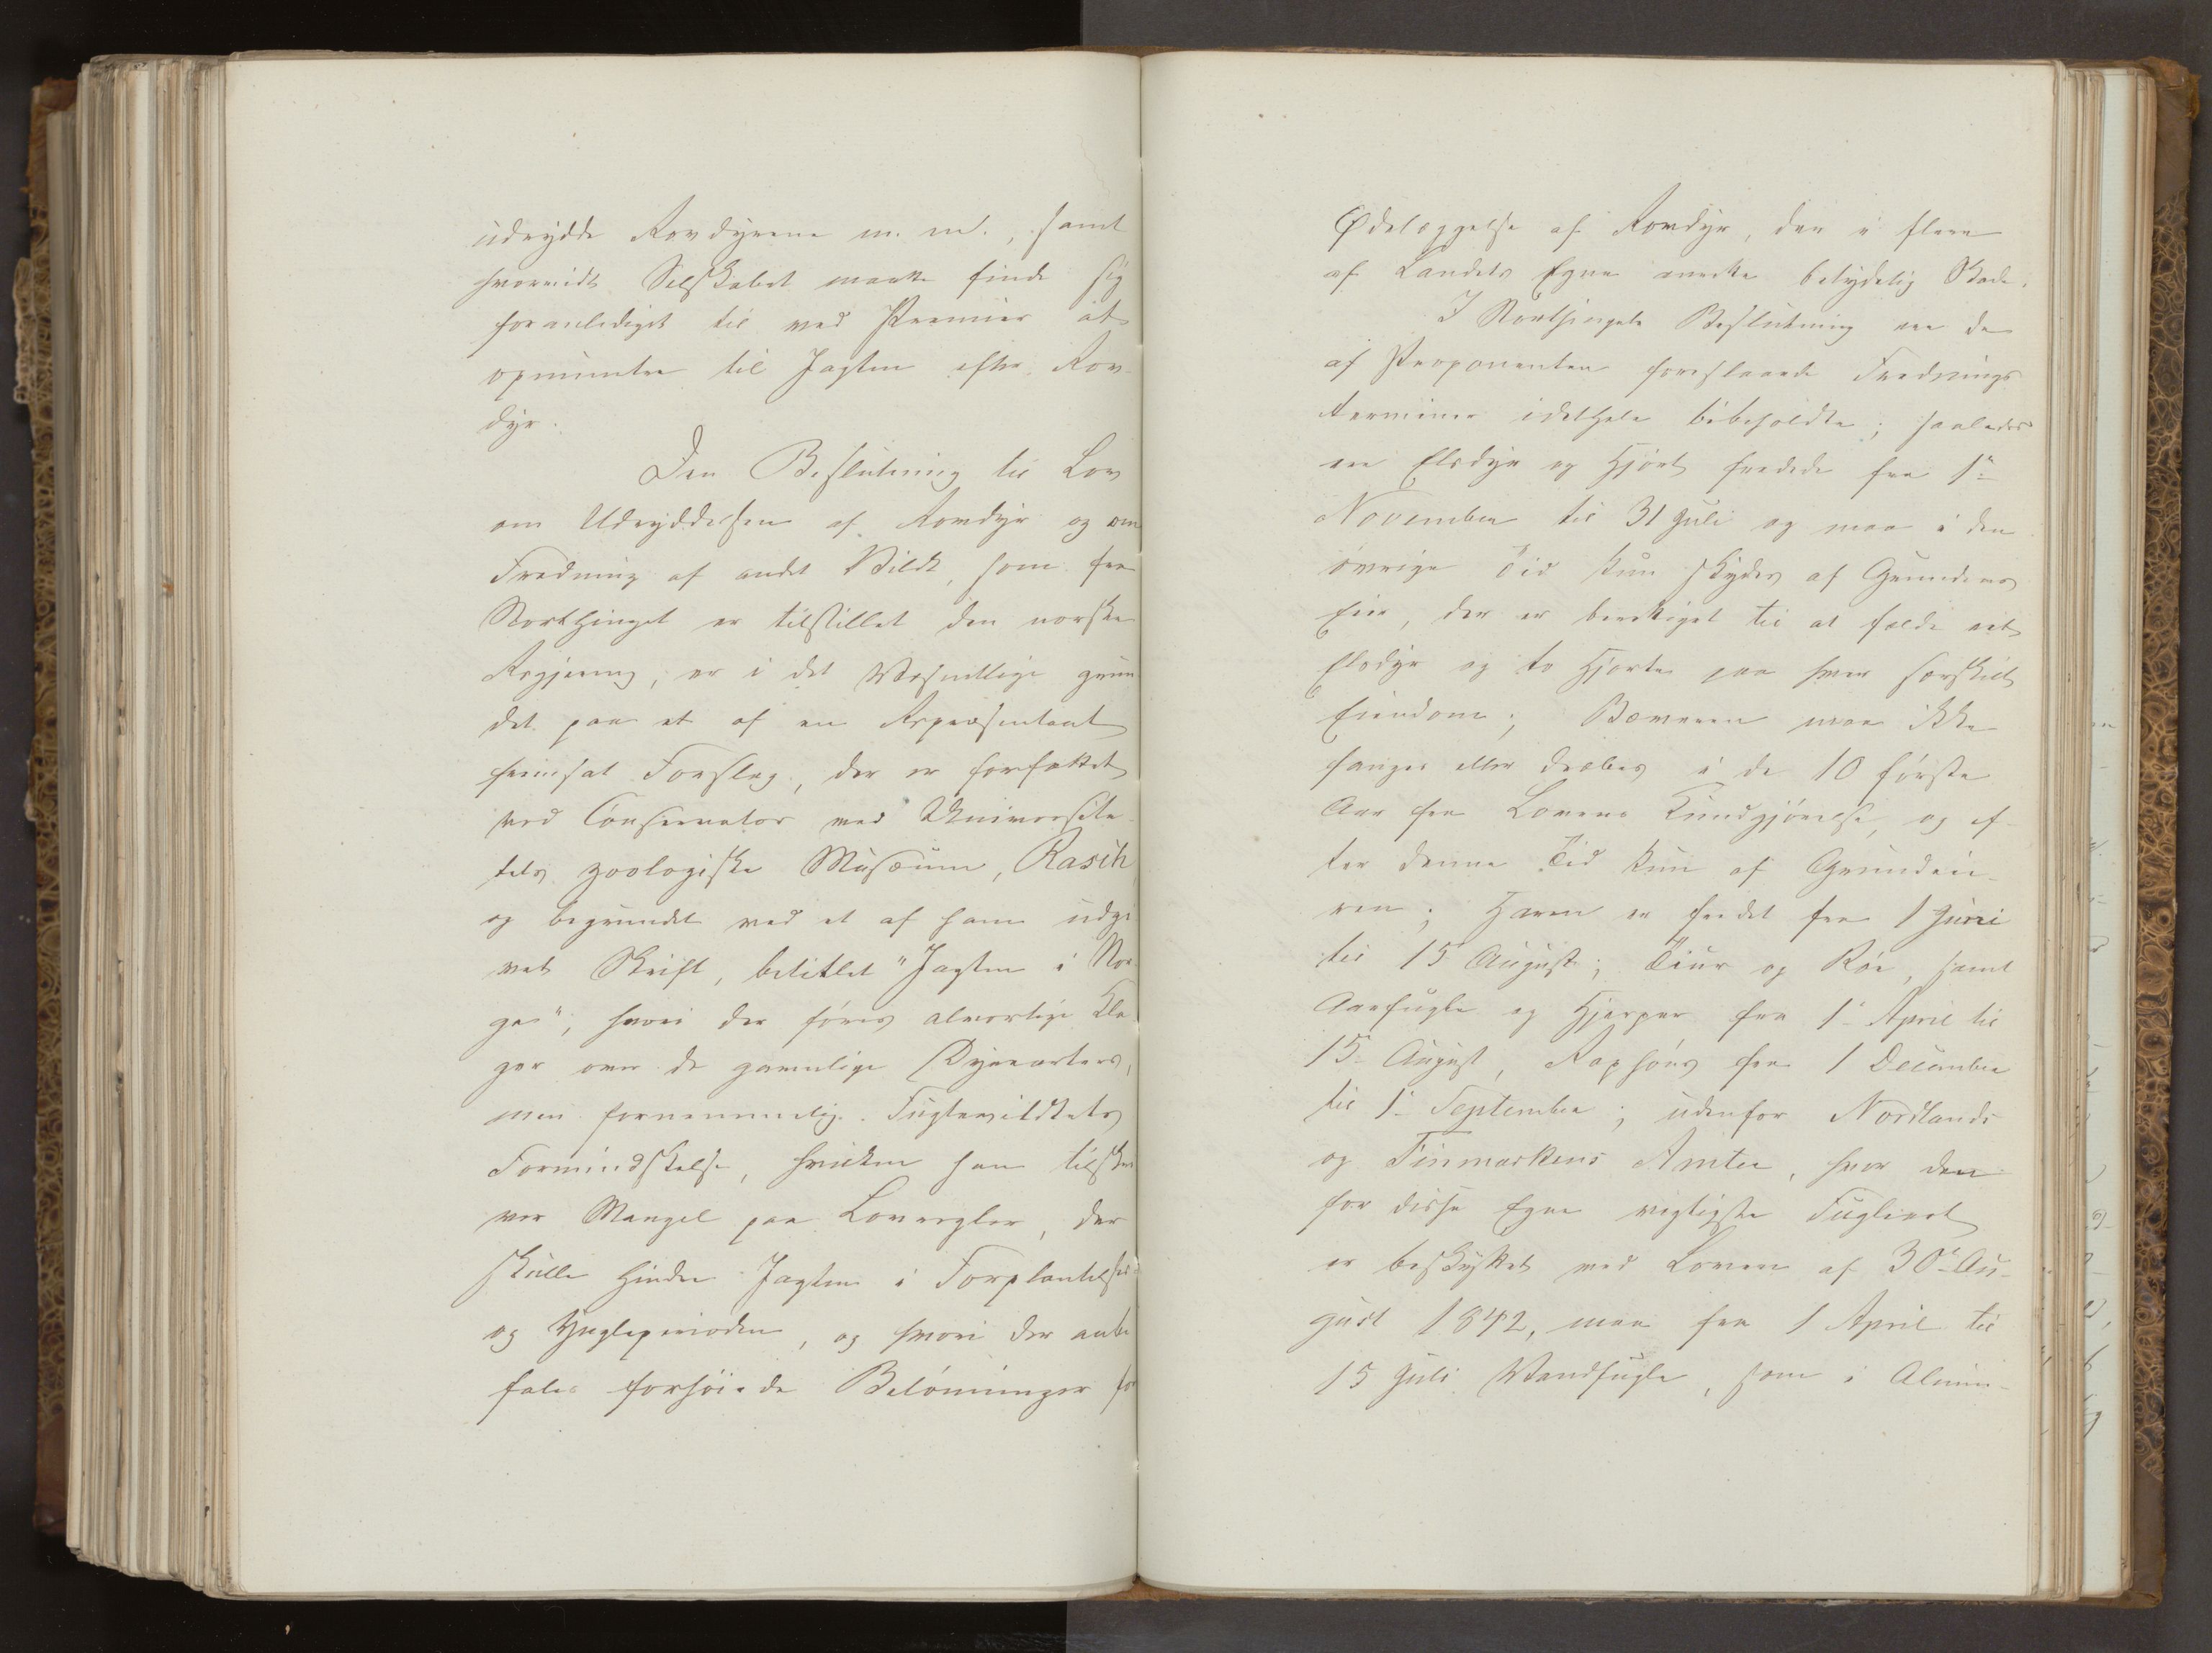 udrydde Rovdyrene m. m., samt
hvorvidt Selskabet maatte finde sig
foranlediget til ved Præmier at
opmuntre til Jagten efter Rov-
dyr.
Den Beslutning til Lov
om Udryddelsen af Rovdyr og om
Fredning af andet Vildt, som fra
Storthinget er tilstillet den norske
Regjering, er i det Væsentlige grun
det paa et af en Repræsentant
fremsat Forslag, der er forfattet
ved Conservator ved Universite-
tets zoologiske Musæum, Rasch
og begrundet ved et af ham udgi
vet Skrift, betitlet "Jagten i Nor-
ge", hvori der føres alvorlige Kla
ger over de gavnlige Dyrearters,
men fornemmelig Fuglevildtets
Formindskelse, hvilken han tilskri
ver Mangel paa Lovregler, der
skulle hindre Jagten i Forplantelses
og Yngleperioden, og hvori der anbe
fales forhøiede Belønninger for
Ødelæggelse af Rovdyr, der i flere
af Landets Egne anrette betydelig Skade.
I Storthingets Beslutning ere de
af Proponenten foreslaaede Frednings
terminer idethele bibeholdte; saaledes
ere Elsdyr og Hjort fredede fra 1ste
November til 31 Juli og maa i den
øvrige Tid kun skydes af Grundens
Eier, der er berettiget til at fælde eet
Elsdyr og to Hjorte paa hver særskilt
Eiendom; Bæveren maa ikke
fanges eller dræbes i de 10 første
Aar fra Lovens Kundgjørelse, og ef-
ter denne Tid kun af Grundeie-
ren; Haren er fredet fra 1 Juni
til 15 August; Tiur og Røi, samt
Aarfugle og Hjerper fra 1ste April til
15de August, Raphøns fra 1 December
til 1ste September; udenfor Nordlands
og Finmarkens Amter, hvor den
for disse Egne vigtigste Fugleart
er beskyttet ved Loven af 30te Au-
gust 1842, maa fra 1 April til
15 Juli Vandfugle, som i Almin-